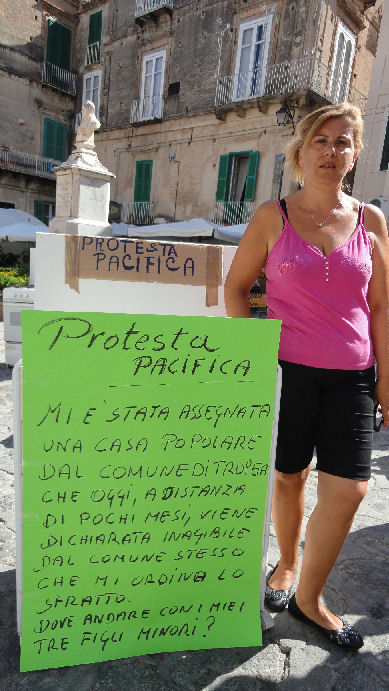 PROTESTA
PACIFICA
Protesta
PACIFICA
MI E' STATA ASSEGNATA
UNA CASA POPOLARE
DAL COMUNE DI TROPEA
CHE OGGI, A DISTANZA
DI POCHI MESI, VIENE
DICHIARATA INAGIBILE
DAL COMUNE STESSO
CHE MI ORDINA LO
SFRATTO.
DOVE ANDARE CON I MIEI
TRE FIGLI MINORI?